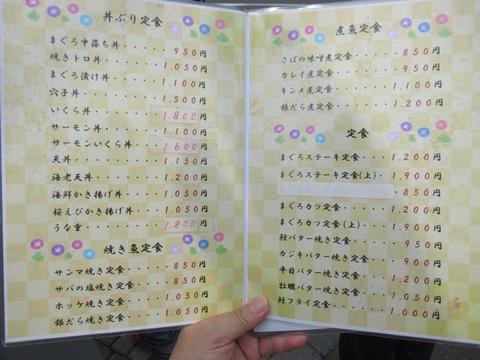 丼ぶり定食
まぐろ中落ち丼・・・・・950円
焼きトロ丼・・・・・・・1.050円
まぐろ漬け丼・・・・・・1.100円
穴子丼・・・・・・・・・1.500円
いくら丼・・・・・・・・1.800円
サーモン丼・・・・・・・1.100円
サーモンいくら丼・・・・1.600円
天丼・・・・・・・・・・1.150円
海老天丼・・・・・・・・1.200円
海鮮かき揚げ丼・・・・・1.050円
桜えびかき揚げ丼・・・・1.050円
うな重・・・・・・・・・1.800円
焼き魚定食
サンマ焼き定食・・・・・850円
サバの塩焼き定食・・・・850円
ホッケ焼き定食・・・・・1.050円
銀だら焼き定食・・・・・1.050円
煮魚定食
さばの味噌煮定食・・・・850円
カレイ煮定食・・・・・・950円
キンメ煮定食・・・・・・1.100円
銀だら煮定食・・・・・・1.200円
定食
まぐろステーキ定食・・・1.200円
まぐろステーキ定食(上)・・1.900円
850円
まぐろカツ定食・・・・・1.200円
まぐろカツ定食(上)・・・1.900円
鮭バター焼き定食・・・・950円
カジキバター焼き定食・・900円
平目バター焼き定食・・・1.200円
牡蠣バター焼き定食・・・1.050円
鮭フライ定食・・・・・・1.000円